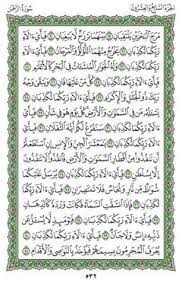 الجزء السابع والعشرون سورة الرحمن
مَرَجَ الْبَحْرَيْنِ يَلْتَقِيَانِ بَيْنَهُمَا بَرْزَخٌ لَّا يَبْغِيَانِ فَبِأَيِّ
آلَاءِ رَبِّكُمَا تُكَذِّبَانِ يَخْرُجُ مِنْهُمَا اللُّؤْلُؤُ وَالْمَرْجَانُ
فَبِأَيِّ آلَاءِ رَبِّكُمَا تُكَذِّبَانِ وَلَهُ الْجَوَارِ الْمُنشَآتُ فِي الْبَحْرِ كَالْأَعْلَامِ
فَبِأَيِّ آلَاءِ رَبِّكُمَا تُكَذِّبَانِ كُلُّ مَنْ عَلَيْهَا فَانٍ وَيَبْقَىٰ وَجْهُ
رَبِّكَ ذُو الْجَلَالِ وَالْإِكْرَامِ فَبِأَيِّ آلَاءِ رَبِّكُمَا تُكَذِّبَانِ
يَسْأَلُهُ مَن فِي السَّمَاوَاتِ وَالْأَرْضِ كُلَّ يَوْمٍ هُوَ فِي شَأْنٍ فَبِأَيِّ
آلَاءِ رَبِّكُمَا تُكَذِّبَانِ سَنَفْرُغُ لَكُمْ أَيُّهَ الثَّقَلَانِ
فَبِأَيِّ آلَاءِ رَبِّكُمَا تُكَذِّبَانِ يَا مَعْشَرَ الْجِنِّ وَالْإِنسِ إِنِ اسْتَطَعْتُمْ
أَن تَنفُذُوا مِنْ أَقْطَارِ السَّمَاوَاتِ وَالْأَرْضِ فَانفُذُوا لَا تَنفُذُونَ
إِلَّا بِسُلْطَانٍ فَبِأَيِّ آلَاءِ رَبِّكُمَا تُكَذِّبَانِ يُرْسَلُ عَلَيْكُمَا
شُوَاظٌ مِّن نَّارٍ وَنُحَاسٌ فَلَا تَنتَصِرَانِ فَبِأَيِّ آلَاءِ رَبِّكُمَا
تُكَذِّبَانِ فَإِذَا انشَقَّتِ السَّمَاءُ فَكَانَتْ وَرْدَةً كَالدِّهَانِ
فَبِأَيِّ آلَاءِ رَبِّكُمَا تُكَذِّبَانِ فَيَوْمَئِذٍ لَّا يُسْأَلُ عَن
ذَنبِهِ إِنسٌ وَلَا جَانٌّ فَبِأَيِّ آلَاءِ رَبِّكُمَا تُكَذِّبَانِ
يُعْرَفُ الْمُجْرِمُونَ بِسِيمَاهُمْ فَيُؤْخَذُ بِالنَّوَاصِي وَالْأَقْدَامِ
٥٣٢